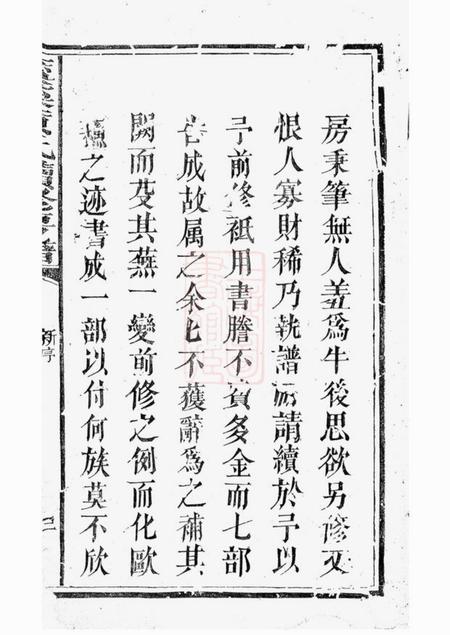 房秉筆無人羞為牛後思欲另修又
恨人寡財稀乃執譜請續於予以
予前修祗用書謄不費多金而七部
告成故属之余七不獲辭為之補其
闕而芟其蕪一變前修之例而化歐
之迹書成一部以付何族莫不欣
新序